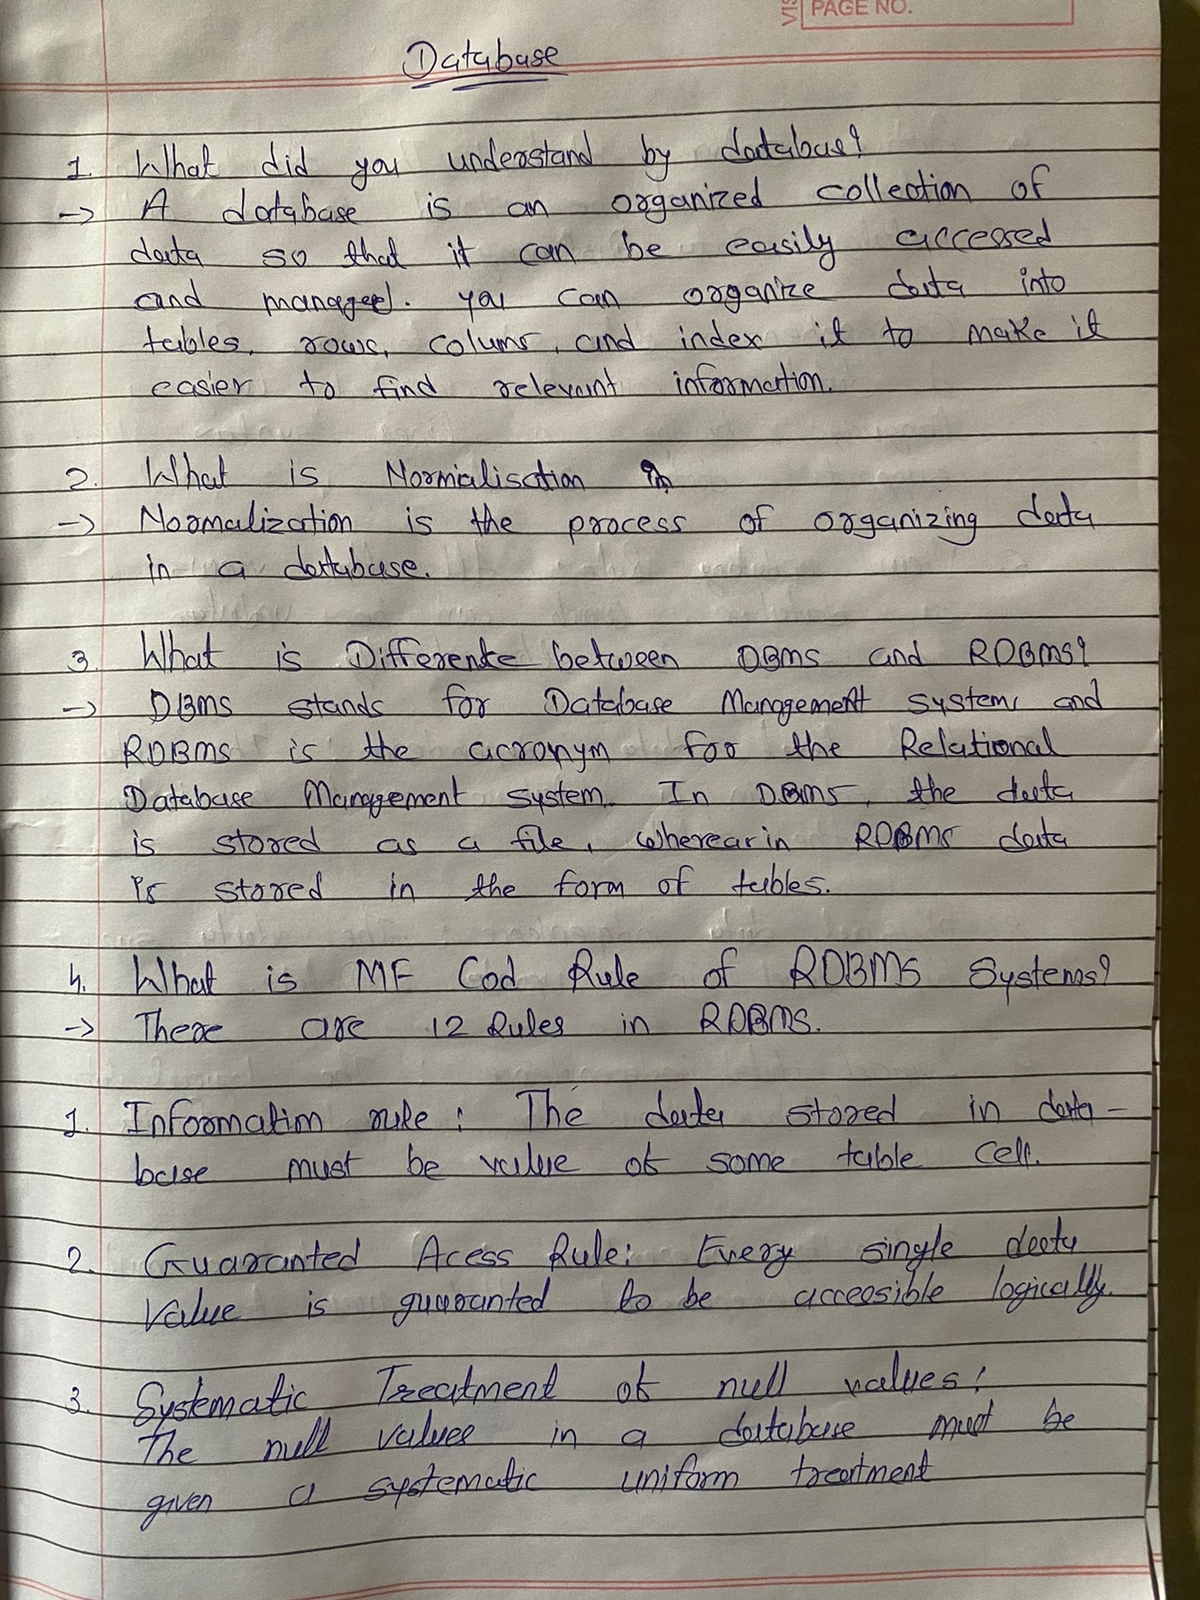 VIS
PAGE NO.
Database
1. What did you understand by database?
-> A database is an organized collection of
data so that it can be easily accessed
and managed. you can organize data into
tables, rows, colums, and index it to make it
easier to find relevant information.
2. What is Normialisation
-> Normalization is the process of organizing data
in a database.
3. What is Differenke between DBMS and RDBMS?
-> DBMS stands for Database Management System, and
RDBMS is the acronym for the Relational
Database Management system. In DBMS, the data
is stored as a file, wherear in RDBMS data
is stored in the form of tables.
4. What is MF Cod Rule of RDBMS Systems?
-> There are 12 Rules in RDBMS.
1. Information rule: The data stored in data-
base must be value of some table cell.
2. Guaranted Acess Rule: Every single data
value is guaranted to be accessible logically.
3. Systematic Treatment of null values:
The null values in a database must be
given a systematic uniform treatment